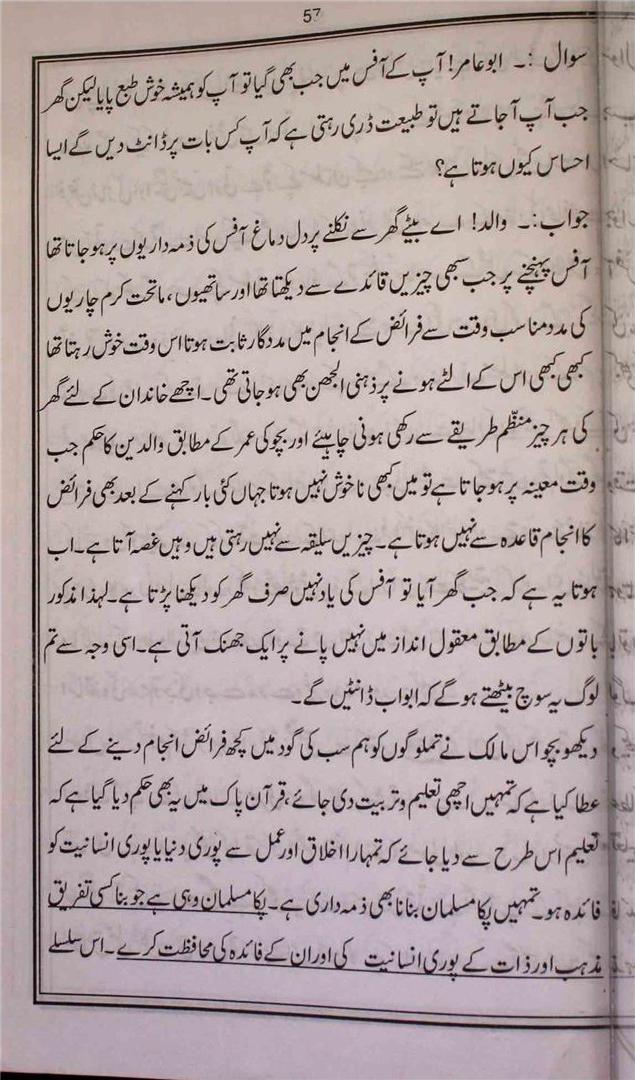 57
سوال :۔ ابو عامر! آپ کے آفس میں جب بھی گیا تو آپ کو ہمیشہ خوش طبع پایا لیکن گھر
جب آپ آ جاتے ہیں تو طبیعت ڈری رہتی ہے کہ آپ کس بات پر ڈانٹ دیں گے ایسا
احساس کیوں ہوتا ہے؟
جواب:۔ والد! اے بیٹے گھر سے نکلنے پر دل دماغ آفس کی ذمہ داریوں پر ہو جاتا تھا
آفس پہنچنے پر جب سبھی چیزیں قائدے سے دیکھتا تھا اور ساتھیوں، ماتحت کرم چاریوں
کی مدد مناسب وقت سے فرائض کے انجام میں مددگار ثابت ہوتا اس وقت خوش رہتا تھا
کبھی کبھی اس کے الٹے ہونے پر ذہنی الجھن بھی ہو جاتی تھی۔ اچھے خاندان کے لئے گھر
کی ہر چیز منظّم طریقے سے رکھی ہونی چاہیئے اور بچو کی عمر کے مطابق والدین کا حکم جب
وقت معینہ پر ہو جاتا ہے تو میں کبھی نا خوش نہیں ہوتا جہاں کئی بار کہنے کے بعد بھی فرائض
کا انجام قاعدہ سے نہیں ہوتا ہے۔ چیزیں سلیقہ سے نہیں رہتی ہیں وہیں غصہ آتا ہے۔ اب
ہوتا یہ ہے کہ جب گھر آیا تو آفس کی یاد نہیں صرف گھر کو دیکھنا پڑتا ہے۔ لہذا مذکور
باتوں کے مطابق معقول انداز میں نہیں پانے پر ایک جھنک آتی ہے۔ اسی وجہ سے تم
لوگ یہ سوچ بیٹھتے ہوگے کہ ابو اب ڈانٹیں گے۔
دیکھو بچو اس مالک نے تملوگوں کو ہم سب کی گود میں کچھ فرائض انجام دینے کے لئے
عطا کیا ہے کہ تمہیں اچھی تعلیم و تربیت دی جائے، قرآن پاک میں یہ بھی حکم دیا گیا ہے کہ
تعلیم اس طرح سے دیا جائے کہ تمہارا اخلاق اور عمل سے پوری دنیا یا پوری انسانیت کو
فائدہ ہو۔ تمہیں پکا مسلمان بنانا بھی ذمہ داری ہے۔ پکا مسلمان وہی ہے جو بنا کسی تفریق
مذہب اور ذات کے پوری انسانیت کی اور ان کے فائدہ کی محافظت کرے۔ اس سلسلے